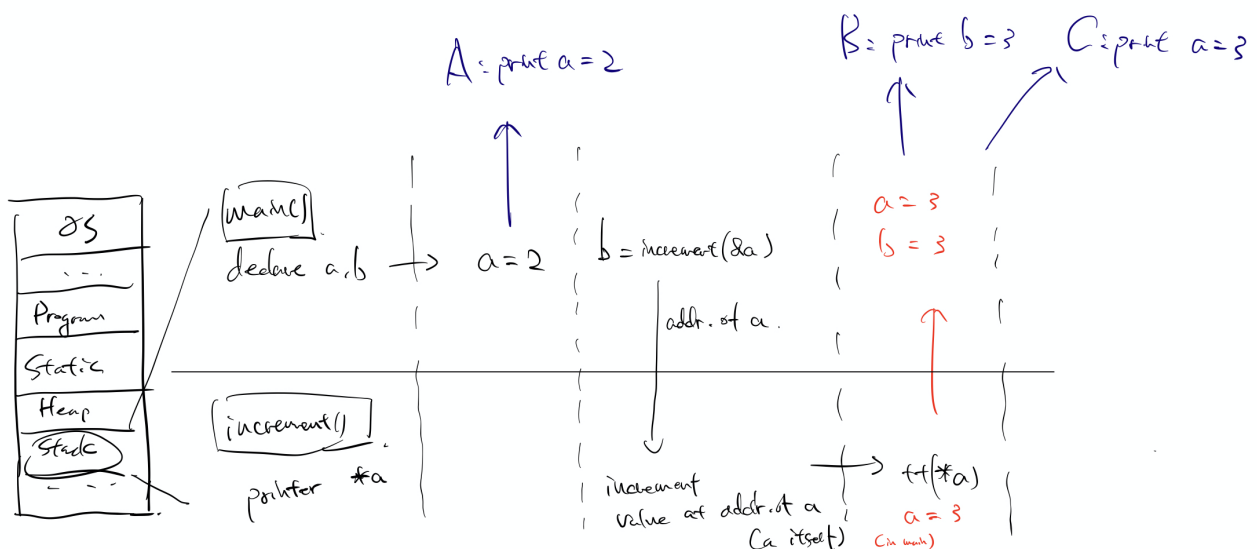 A: print a = 2
B: print b = 3
C: print a = 3
OS
....
Program
Static
Heap
Stack
...
main()
declare a, b
a = 2
b = increment(&a)
addr. of a.
a = 3
b = 3
increment()
pointer *a
increment
value at addr. of a
(a itself)
++(*a)
a = 3
(in main)